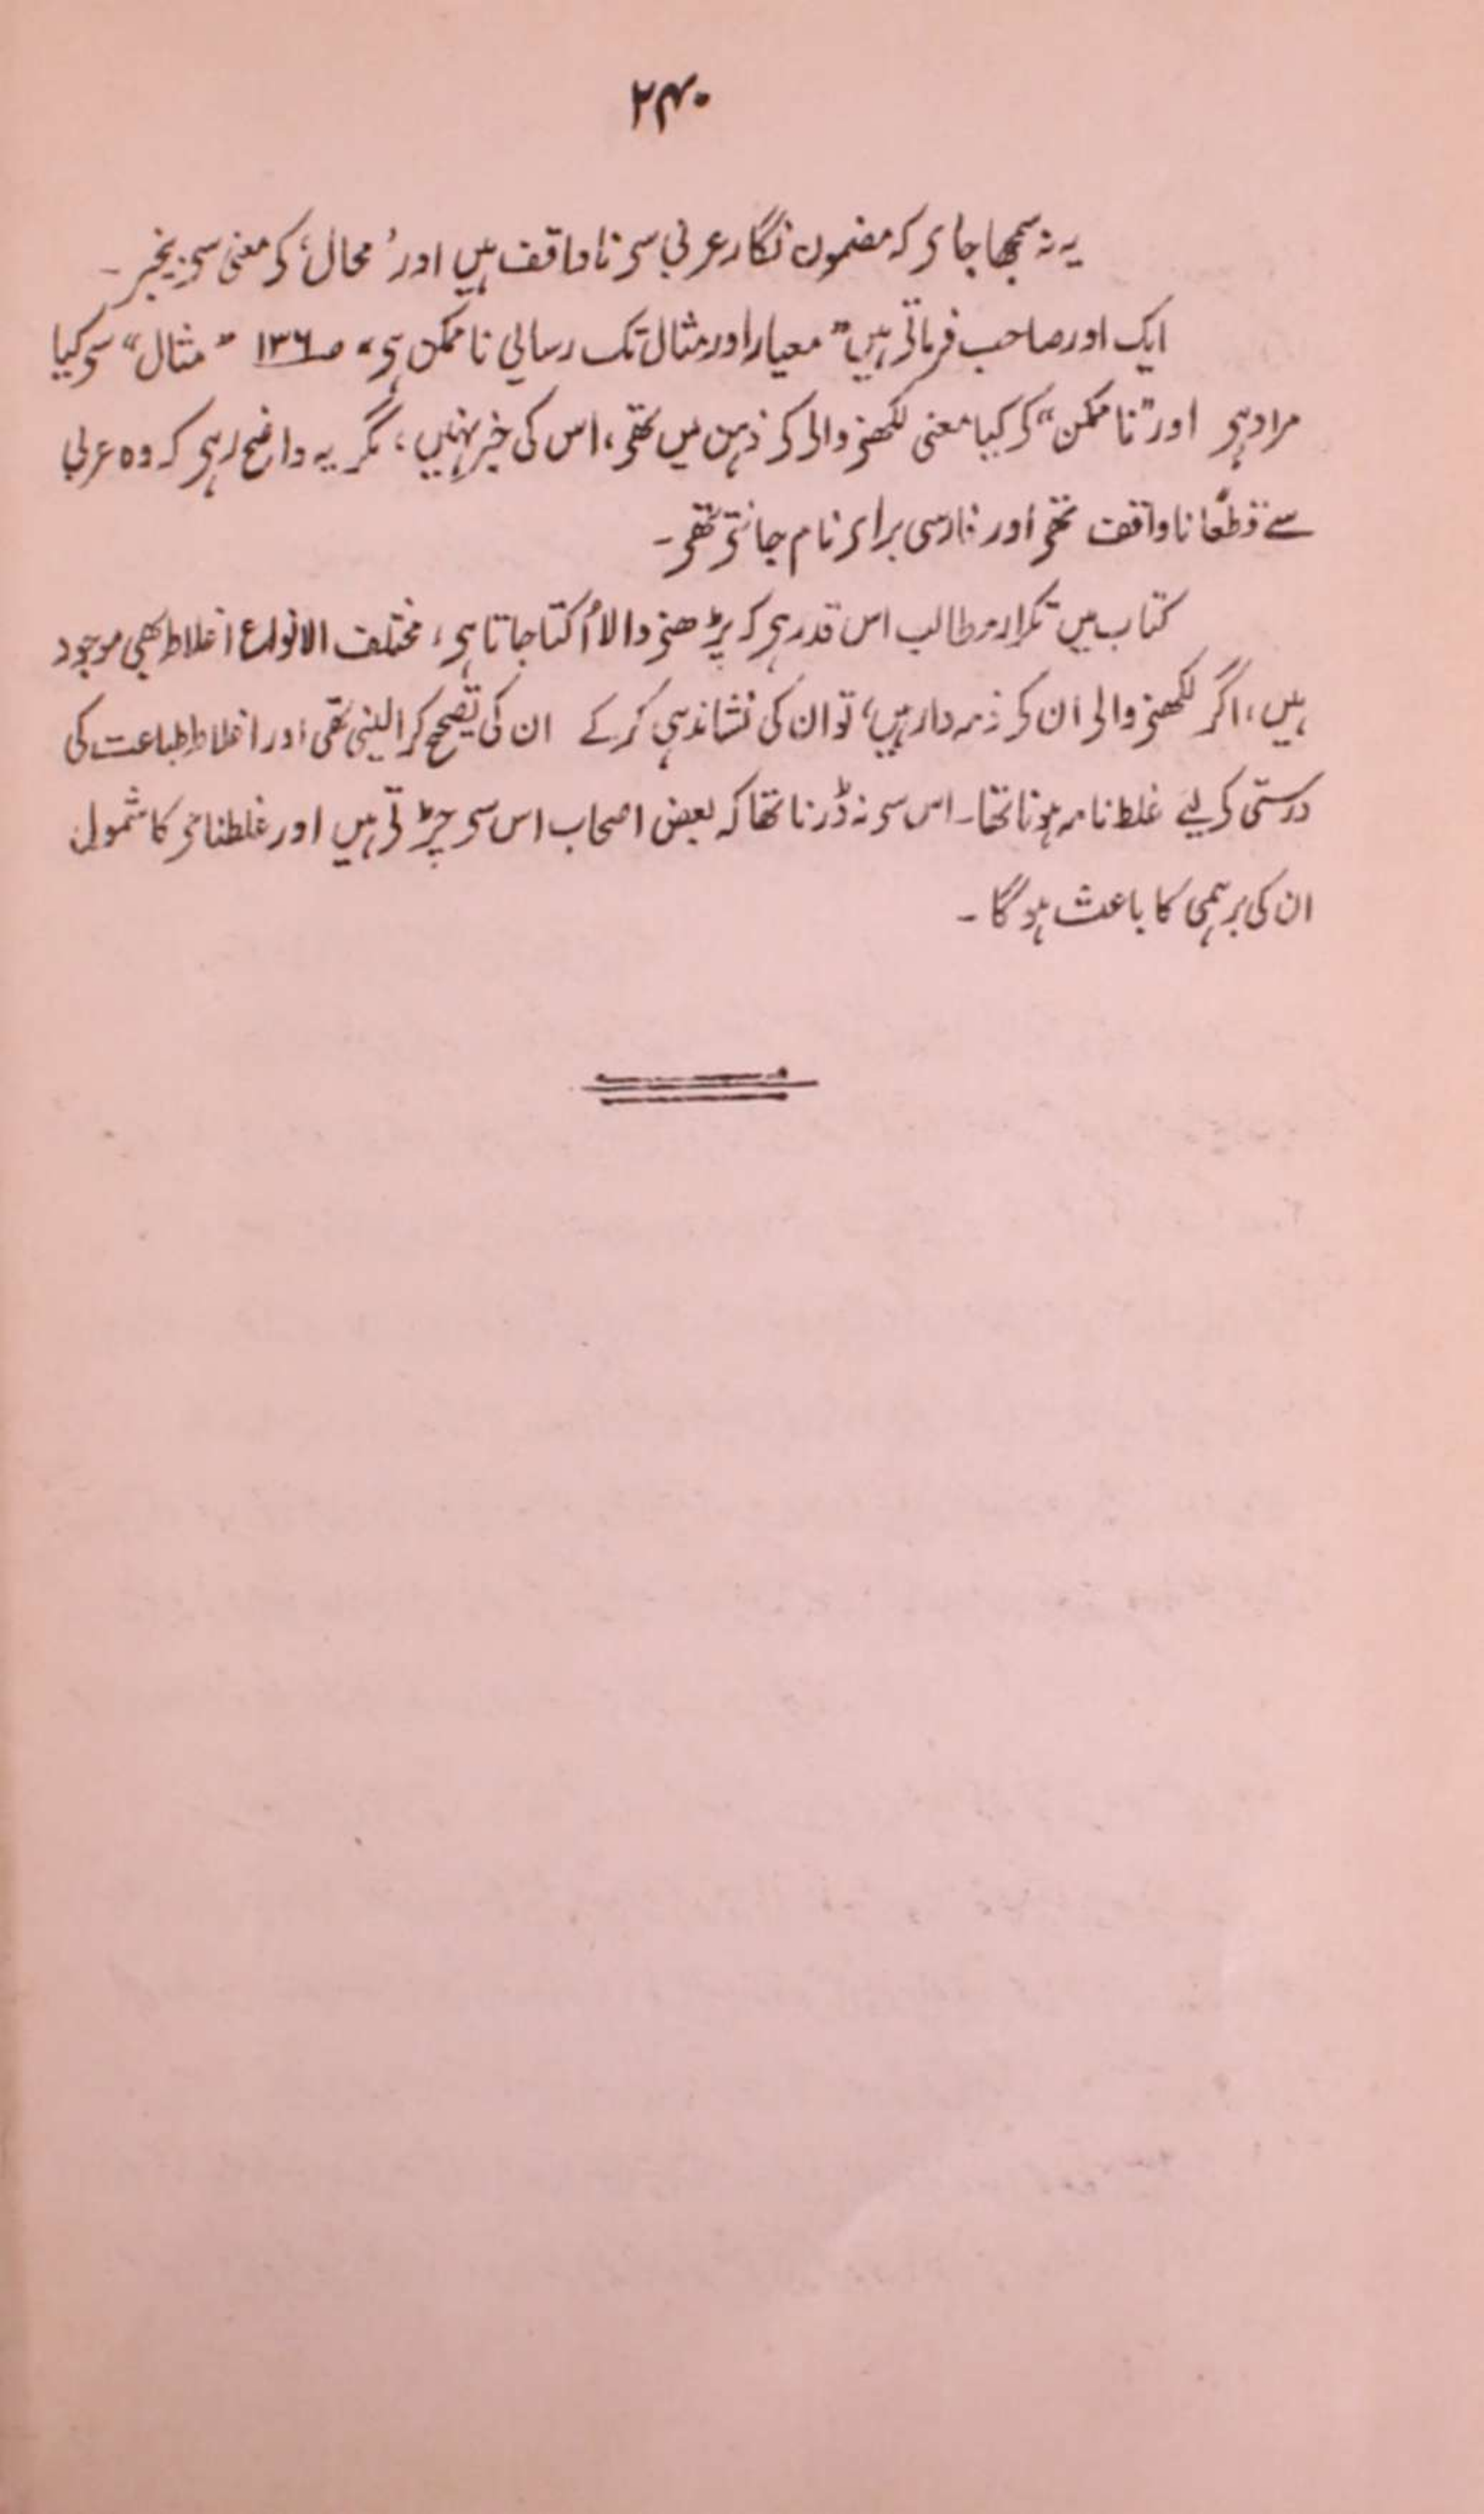 ۲۴۰
یہ نہ سمجھا جای کہ مضمون نگار عربی سی ناواقف ہیں اور 'محال' کی معنی سی بیخبر ۔
ایک اور صاحب فرماتی ہیں "معیار اور مثال تک رسائی ناممکن ہی" صـ ۱۳۶ "مثال" سی کیا
مراد ہی اور "ناممکن" کی کیا معنی لکھنی والی کی ذہن میں تھی، اس کی خبر نہیں، مگر یہ واضح رہی کہ وہ عربی
سے قطعًا ناواقف تھی اور فارسی برای نام جانتی تھی۔
کتاب میں تکرار مطالب اس قدر ہی کہ پڑھنی والا اُکتا جاتا ہی، مختلف الانواع اغلاط بھی موجود
ہیں، اگر لکھنی والی ان کی ذمہ دار ہیں، تو ان کی نشاندہی کر کے ان کی تصحیح کرالینی تھی اور اغلاط طباعت کی
درستی کی لیے غلط نامہ ہونا تھا۔ اس سی نہ ڈرنا تھا کہ بعض اصحاب اس سی چڑتی ہیں اور غلطنامی کا شمول
ان کی برہمی کا باعث ہو گا ۔